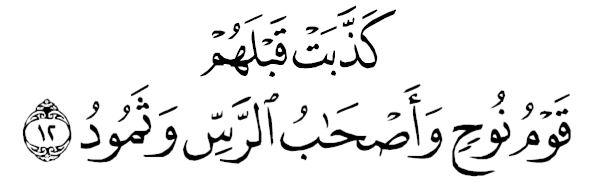 كَذَّبَتْ قَبْلَهُمْ
قَوْمُ نُوحٍ وَأَصْحَٰبُ ٱلرَّسِّ وَثَمُودُ ١٢